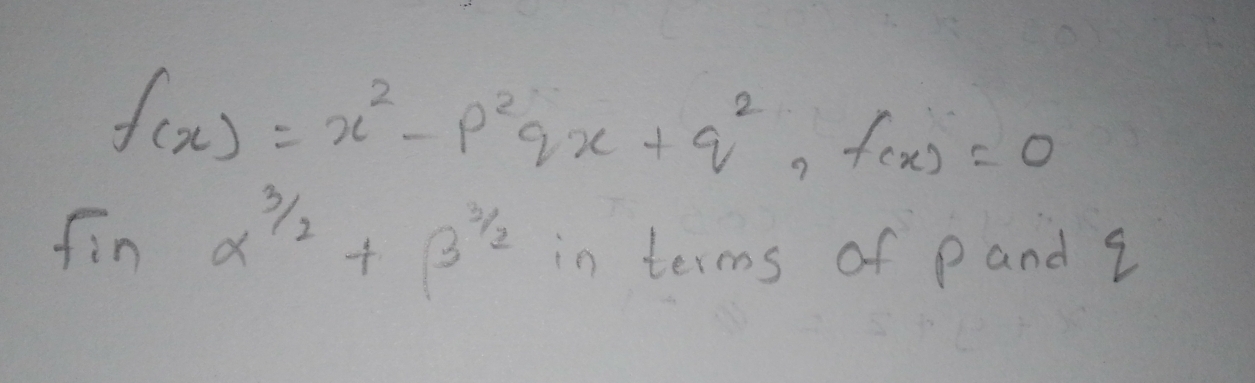 f(x) = x² - p²qx + q² , f(x) = 0
fin α^3/2 + β^3/2 in terms of p and q